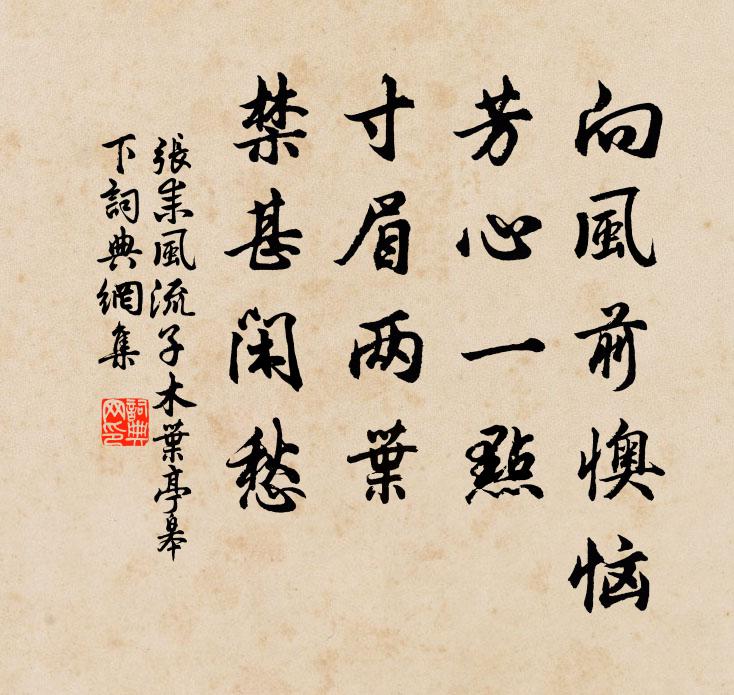 向風前懊恼
芳心一點
寸眉两葉
禁甚閑愁
張耒風流子木葉亭皋
下詞典網集
詞典网印